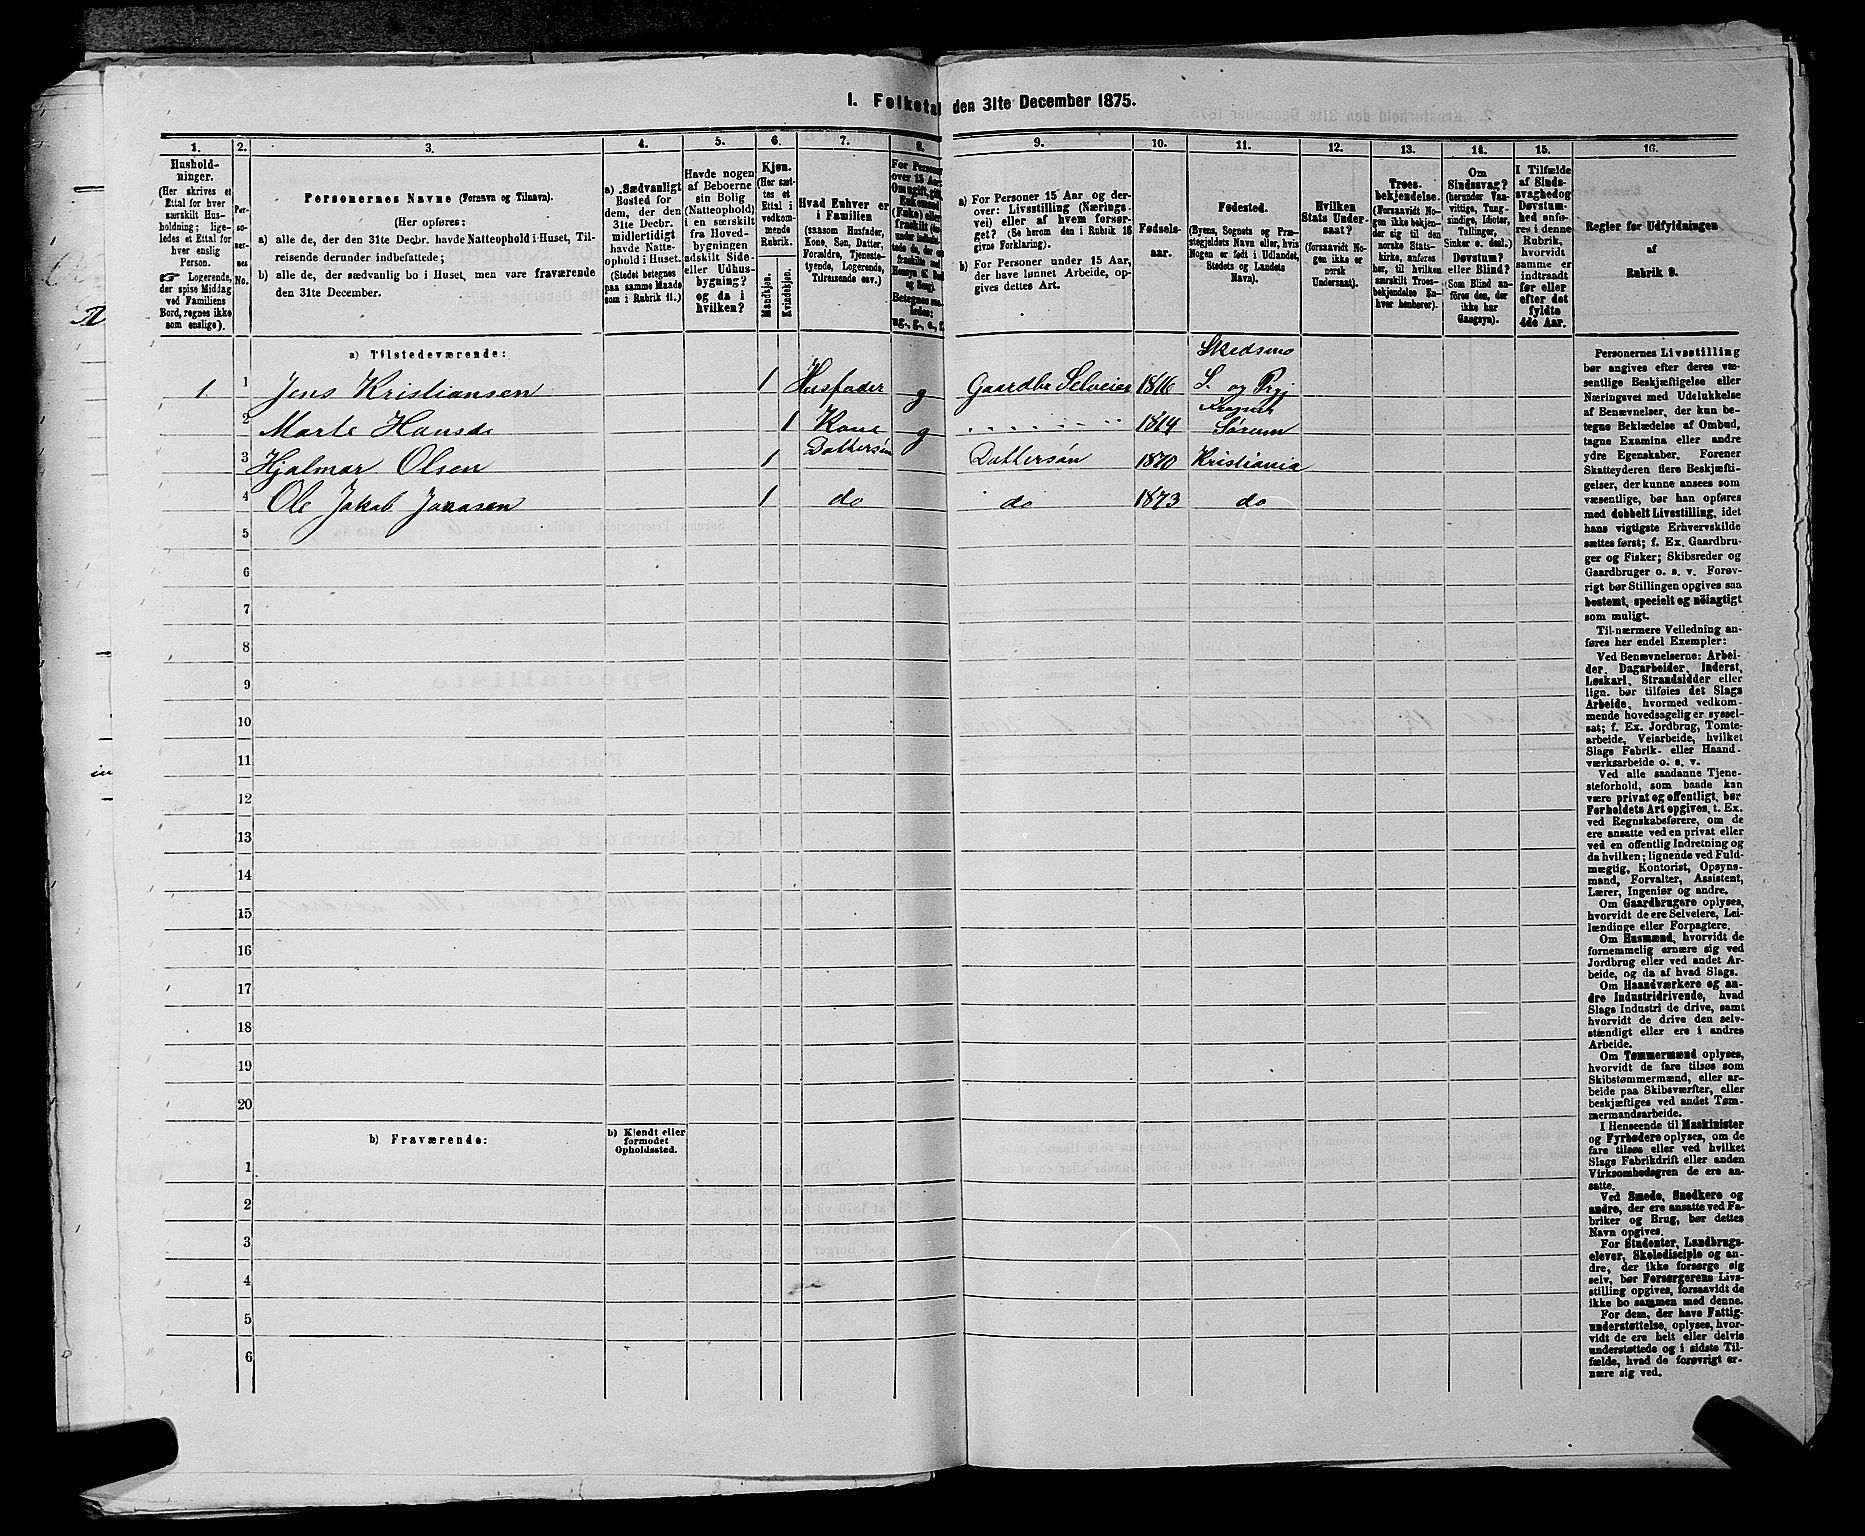 I. Folketal den 31te December 1875.
1. 2. 3. 4. 5. 6. 7. 8. 9. 10. 11. 12. 13. 14. 15. 16.
Hushold-
ninger.
(Her skrives et
Ettal for hver
særskilt Hus-
holdning; lige-
ledes et Ettal for
hver enslig
Person.
☞ Logerende,
der spise Middag
ved Familiens
Bord, regnes ikke
som enslige).
Per-
so-
ner-
nes
No.
Personernes Navne (Fornavn og Tilnavn).
(Her opføres:
a) alle de, der den 31te Decbr. havde Natteophold i Huset, Til-
reisende derunder indbefattede;
b) alle de, der sædvanlig bo i Huset, men vare fraværende
den 31te December.
a) Sædvanligt
Bosted for
dem, der den
31te Decbr.
midlertidigt
havde Natte-
ophold i Huset.
(Stedet betegnes
paa samme Maade
som i Rubrik 11.)
Havde nogen
af Beboerne
sin Bolig
(Natteophold)
i en særskilt
fra Hoved-
bygningen
adskilt Side-
eller Udhus-
bygning?
og da i
hvilken?
Kjøn.
(Her sæt-
tes et
Ettal i
vedkom-
mende
Rubrik.
Mandkjøn.
Kvindekjøn.
Hvad Enhver er
i Familien
(saasom Husfader,
Kone, Søn, Datter,
Forældre, Tjeneste-
tyende, Logerende,
Tilreisende osv.)
For Personer
over 15 Aar:
Om ugift, gift,
Enkemand
(Enke) eller
fraskilt
Betegnes saa-
ledes:
ug., g., e., f.
a) For Personer 15 Aar og der-
over: Livsstilling (Nærings-
vei) eller af hvem forsør-
get? (Se herom den i Rubrik 16
givne Forklaring).
b) For Personer under 15 Aar,
der have lønnet Arbeide, op-
gives dettes Art.
Fødsels-
aar.
Fødested.
(Byens, Sognets og Præ-
stegjeldets Navn eller, hvis
Nogen er født i Udlandet,
Stedets og Landets
Navn).
Hvilken
Stats Under-
saat?
(forsaavidt No-
gen ikke er
norsk
Undersaat).
Troes-
bekjendelse.
(Forsaavidt No-
gen ikke bekjen-
der sig til den
norske Stats-
kirke, anføres
her, til hvilken
særskilt Troes-
bekjendelse En-
hver henhører).
Om
Sindssvag?
(herunder Van-
vittige, Tung-
sindige, Idioter,
Tullinger,
Sinker o. desl.)
Døvstum?
eller Blind?
(Som Blind an-
føres den, der
ikke har
Gangsyn).
I Tilfælde
af Sinds-
svaghed og
Døvstum-
hed anfø-
res i denne
Rubrik,
hvorvidt
samme er
indtraadt
før eller
efter det
fyldte
4de Aar.
Regler for Udfyldningen
af
Rubrik 9.
a) Tilstedeværende:
1 1 Jens Kristiansen 1 Husfader g Gaardbr. Selveier 1816 Skedsmo S. og Prgj
2 Marte Hansdr 1 Kone g 1814 Sørum
3 Hjalmar Olsen 1 Dattersøn Dattersøn 1870 Kristiania
4 Ole Jakob Jonasen 1 do do 1873 do
5
6
7
8
9
10
11
12
13
14
15
16
17
18
19
20
b) Fraværende:
b) Kjendt eller
formodet
Opholdssted.
1
2
3
4
5
6
Personernes Livsstilling
bør angives efter deres væ-
sentlige Beskjæftigelse eller
Næringsvei med Udelukkelse
af Benævnelser, der kun be-
tegne Beklædelse af Ombud,
tagne Examina eller andre
ydre Egenskaber. Forener
Skatteyderen flere Beskjæfti-
gelser, der kunne ansees som
væsentlige, bør han opføres
med dobbelt Livsstilling, idet
hans vigtigste Erhvervskilde
sættes først; f. Ex. Gaardbru-
ger og Fisker; Skibsreder og
Gaardbruger o. s. v. Forøv-
rigt bør Stillingen opgives saa
bestemt, specielt og nøiagtigt
som muligt.
Til nærmere Veiledning an-
føres her endel Exempler:
Ved Benævnelserne: Arbei-
der, Dagarbeider, Inderst,
Løskarl, Strandsidder eller
lign. bør tilføies det Slags
Arbeide, hvormed vedkom-
mende hovedsagelig er syssel-
sat; f. Ex. Jordbrug, Tomte-
arbeide, Veiarbeide, hvilket
Slags Fabrik- eller Haand-
værksarbeide o. s. v.
Ved alle saadanne Tjene-
steforhold, som baade kan
være privat og offentligt, bør
Forholdets Art opgives, t. Ex.
ved Regnskabsførere, om de
ere ansatte ved en privat eller
ved en offentlig Indretning og
da hvilken; lignende ved Fuld-
mægtig, Kontorist, Opsyns-
mand, Forvalter, Assistent,
Lærer, Ingeniør og andre.
Om Gaardbrugere oplyses,
hvorvidt de ere Selveiere, Lei-
lændinge eller Forpagtere.
Om Husmænd, hvorvidt de
fornemmelig ernære sig ved
Jordbrug eller ved andet Ar-
beide, og da af hvad Slags.
Om Haandværkere og an-
dre Industridrivende, hvad
Slags Industri de drive, samt
hvorvidt de drive den selv-
stændigt eller ere i andres
Arbeide.
Om Tømmermænd oplyses,
hvorvidt de fare tilsøs som
Skibstømmermænd, eller ar-
beide paa Skibsværfter, eller
beskjæftiges ved andet Tøm-
mermandsarbeide.
I Henseende til Maskinister
og Fyrbødere oplyses, om de
fare tilsøs eller ved hvilket
Slags Fabrikdrift eller anden
Virksomhedsgren de ere an-
satte.
Ved Smede, Snedkere og
andre, der ere ansatte ved Fa-
briker og Brug, bør dettes
Navn opgives.
For Studenter, Landbrugs-
elever, Skoledisciple og an-
dre, der ikke forsørge sig
selv, bør Forsørgerens Livs-
stilling opgives, forsaavidt de
ikke bo sammen med denne.
For dem, der have Fattig-
understøttelse, oplyses, hvor-
vidt de ere helt eller delvis
understøttede og i sidste Til-
fælde, hvad de forøvrigt er-
nære sig ved.